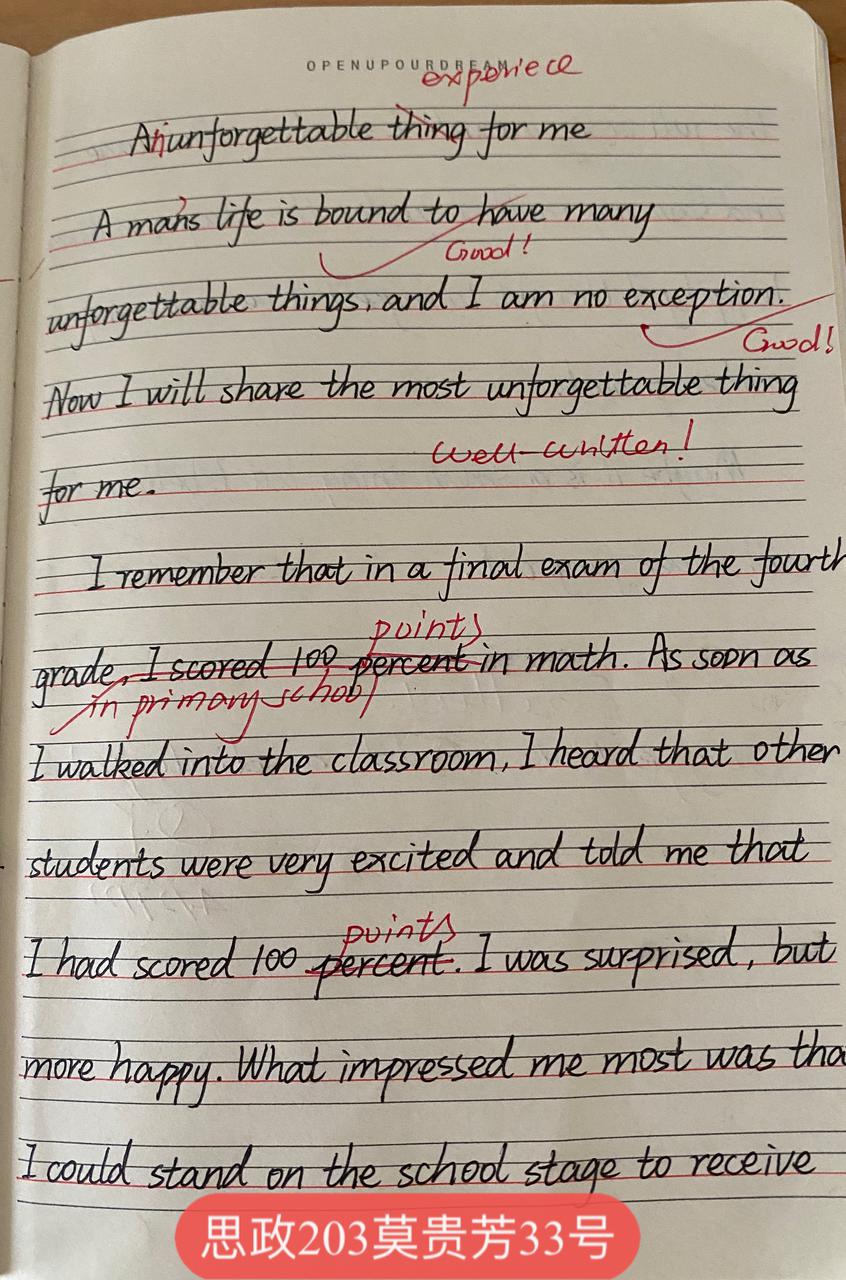 OPENUPOURDREAM
experiece
An unforgettable thing for me
A man's life is bound to have many
Good!
unforgettable things, and I am no exception.
Good!
Now I will share the most unforgettable thing
well-written!
for me.
I remember that in a final exam of the fourth
points
grade, I scored 100 percent in math. As soon as
in primary school
I walked into the classroom, I heard that other
students were very excited and told me that
points
I had scored 100 percent. I was surprised, but
more happy. What impressed me most was tha
I could stand on the school stage to receive
思政203莫贵芳33号